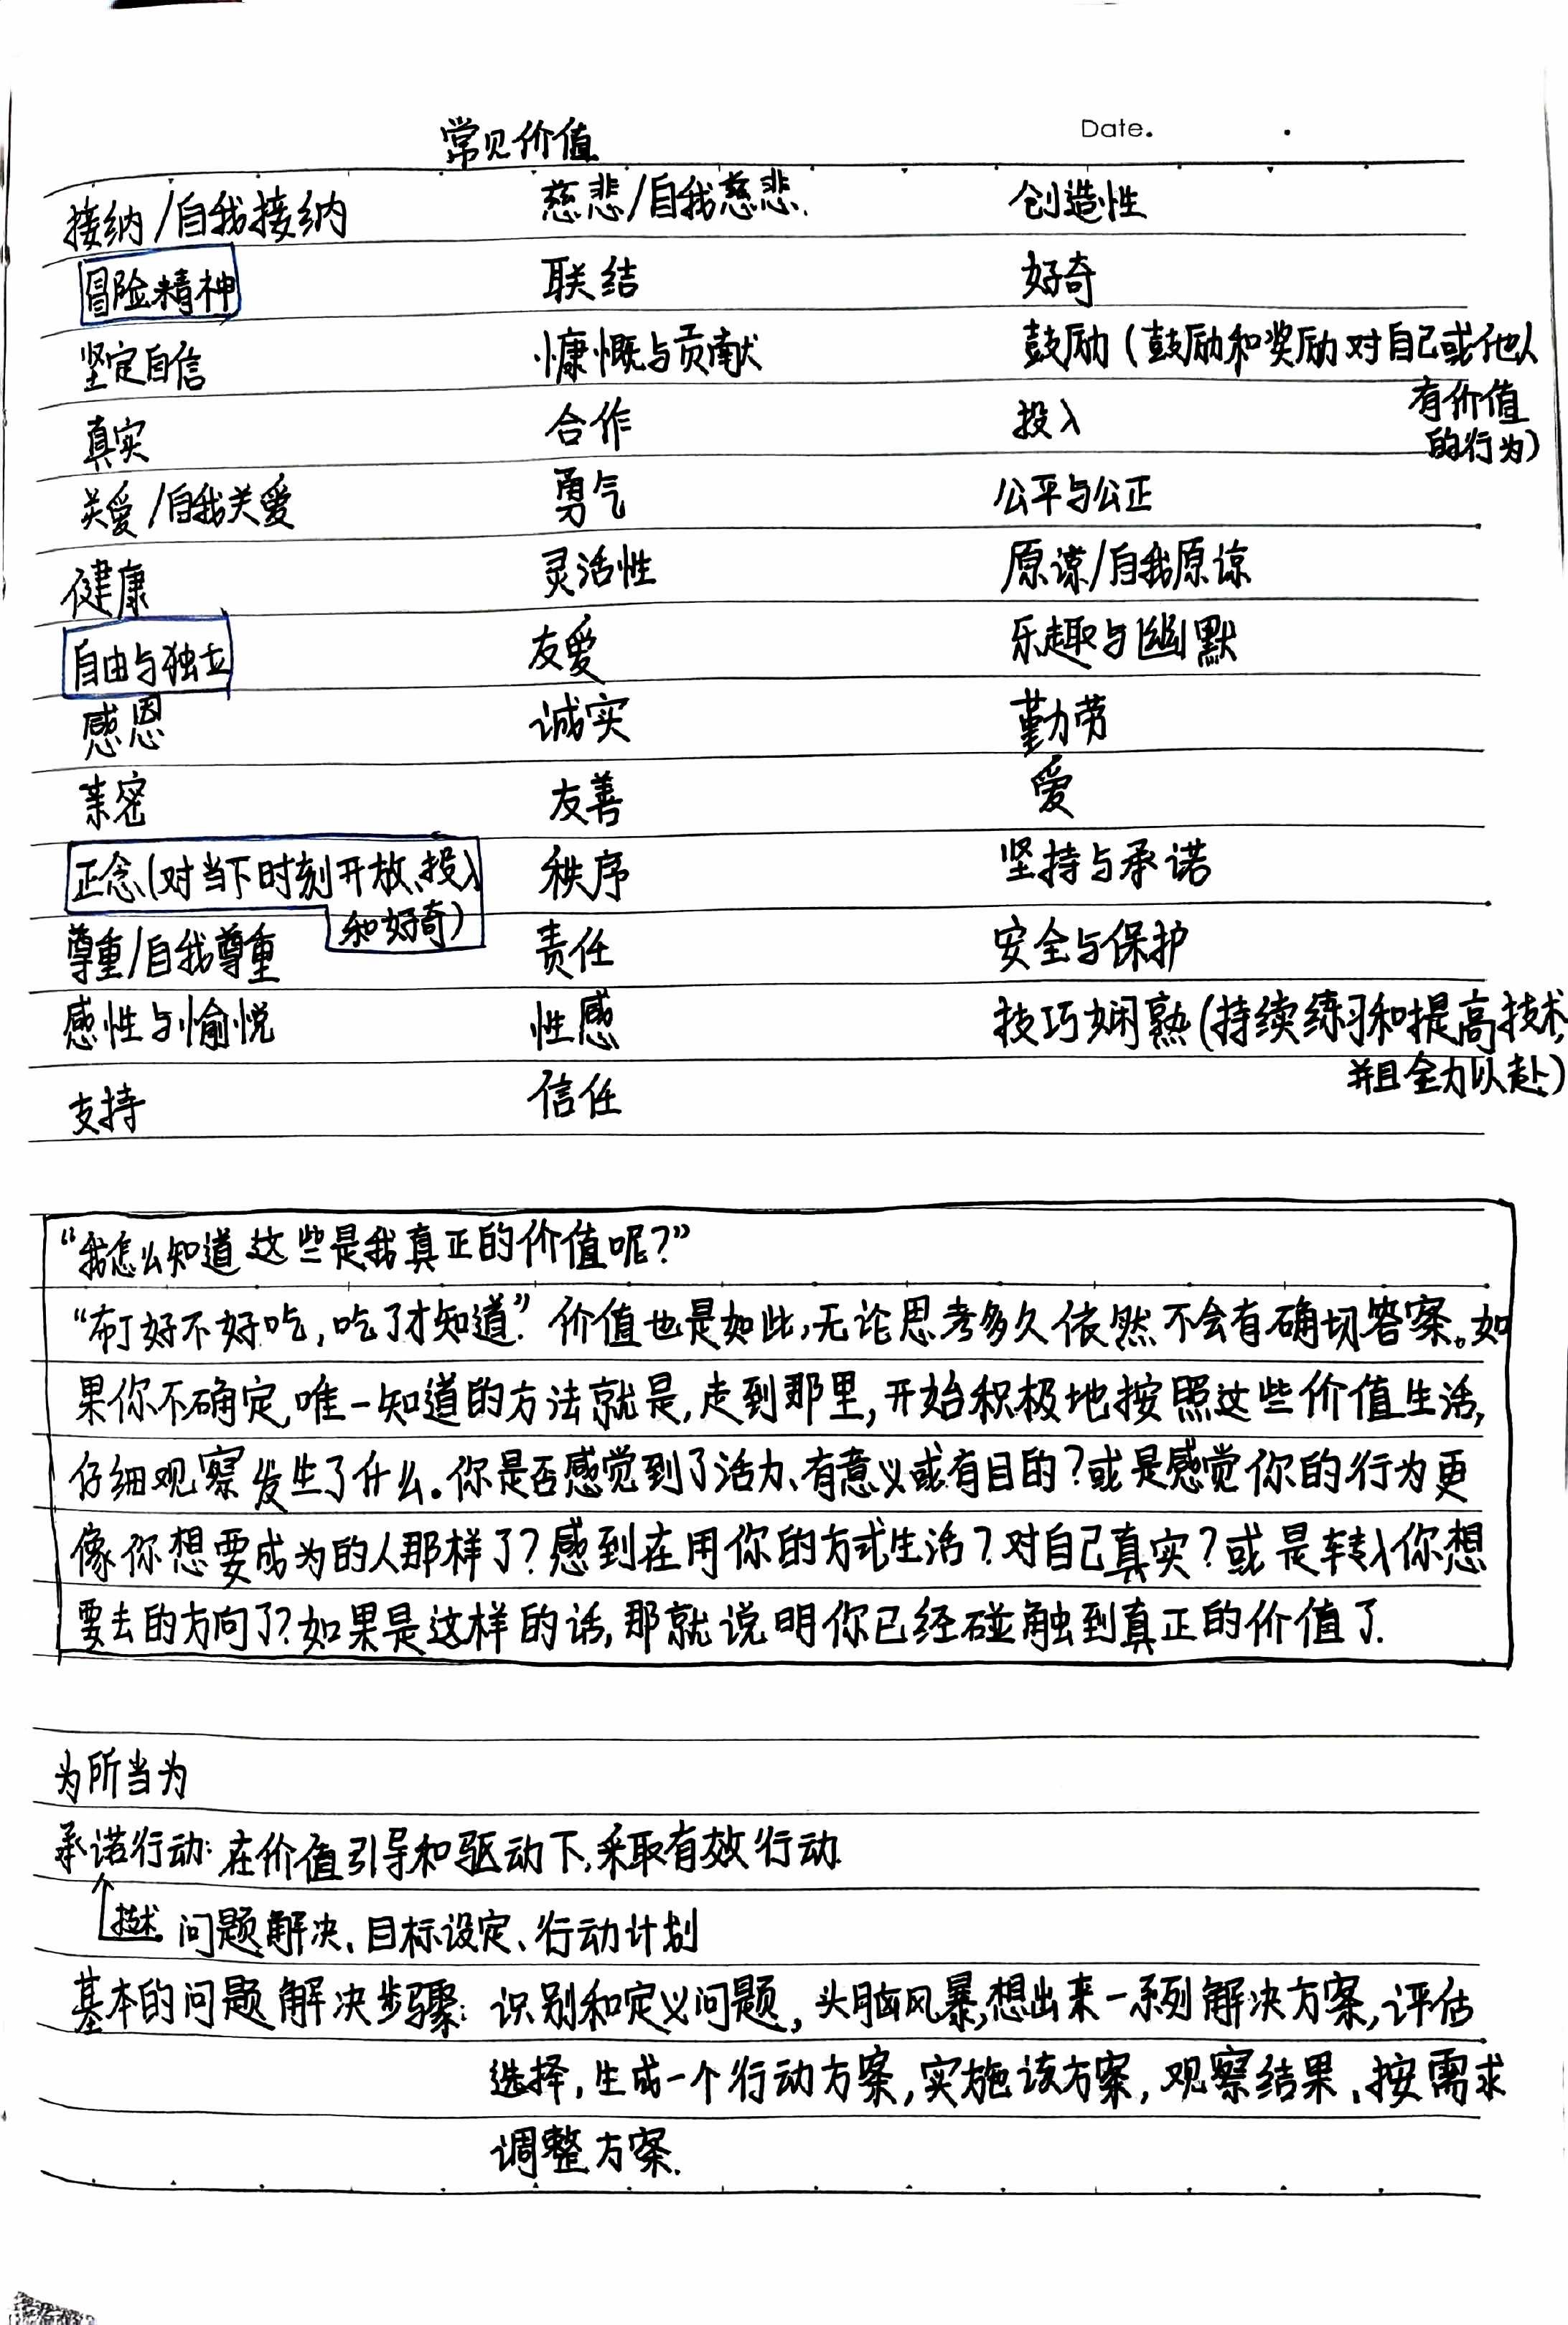 Date.
常见价值
接纳/自我接纳 慈悲/自我慈悲. 创造性
冒险精神 联结 好奇
坚定自信 慷慨与贡献 鼓励(鼓励和奖励对自己或他人
有价值
真实 合作 投入
的行为)
关爱/自我关爱 勇气 公平与公正
健康 灵活性 原谅/自我原谅
自由与独立 友爱 乐趣与幽默
感恩 诚实 勤劳
亲密 友善 爱
正念(对当下时刻开放、投入 秩序 坚持与承诺
和好奇)
尊重/自我尊重 责任 安全与保护
感性与愉悦 性感 技巧娴熟(持续练习和提高技术,
并且全力以赴)
支持 信任
“我怎么知道这些是我真正的价值呢?”
“布丁好不好吃,吃了才知道.”价值也是如此,无论思考多久依然不会有确切答案。如
果你不确定,唯一知道的方法就是,走到那里,开始积极地按照这些价值生活,
仔细观察发生了什么.你是否感觉到了活力、有意义或有目的?或是感觉你的行为更
像你想要成为的人那样了?感到在用你的方式生活?对自己真实?或是转入你想
要去的方向了?如果是这样的话,那就说明你已经碰触到真正的价值了.
为所当为
承诺行动:在价值引导和驱动下,采取有效行动.
技术 问题解决、目标设定、行动计划
基本的问题解决步骤: 识别和定义问题,头脑风暴,想出来一系列解决方案,评估
选择,生成一个行动方案,实施该方案,观察结果,按需求
调整方案.